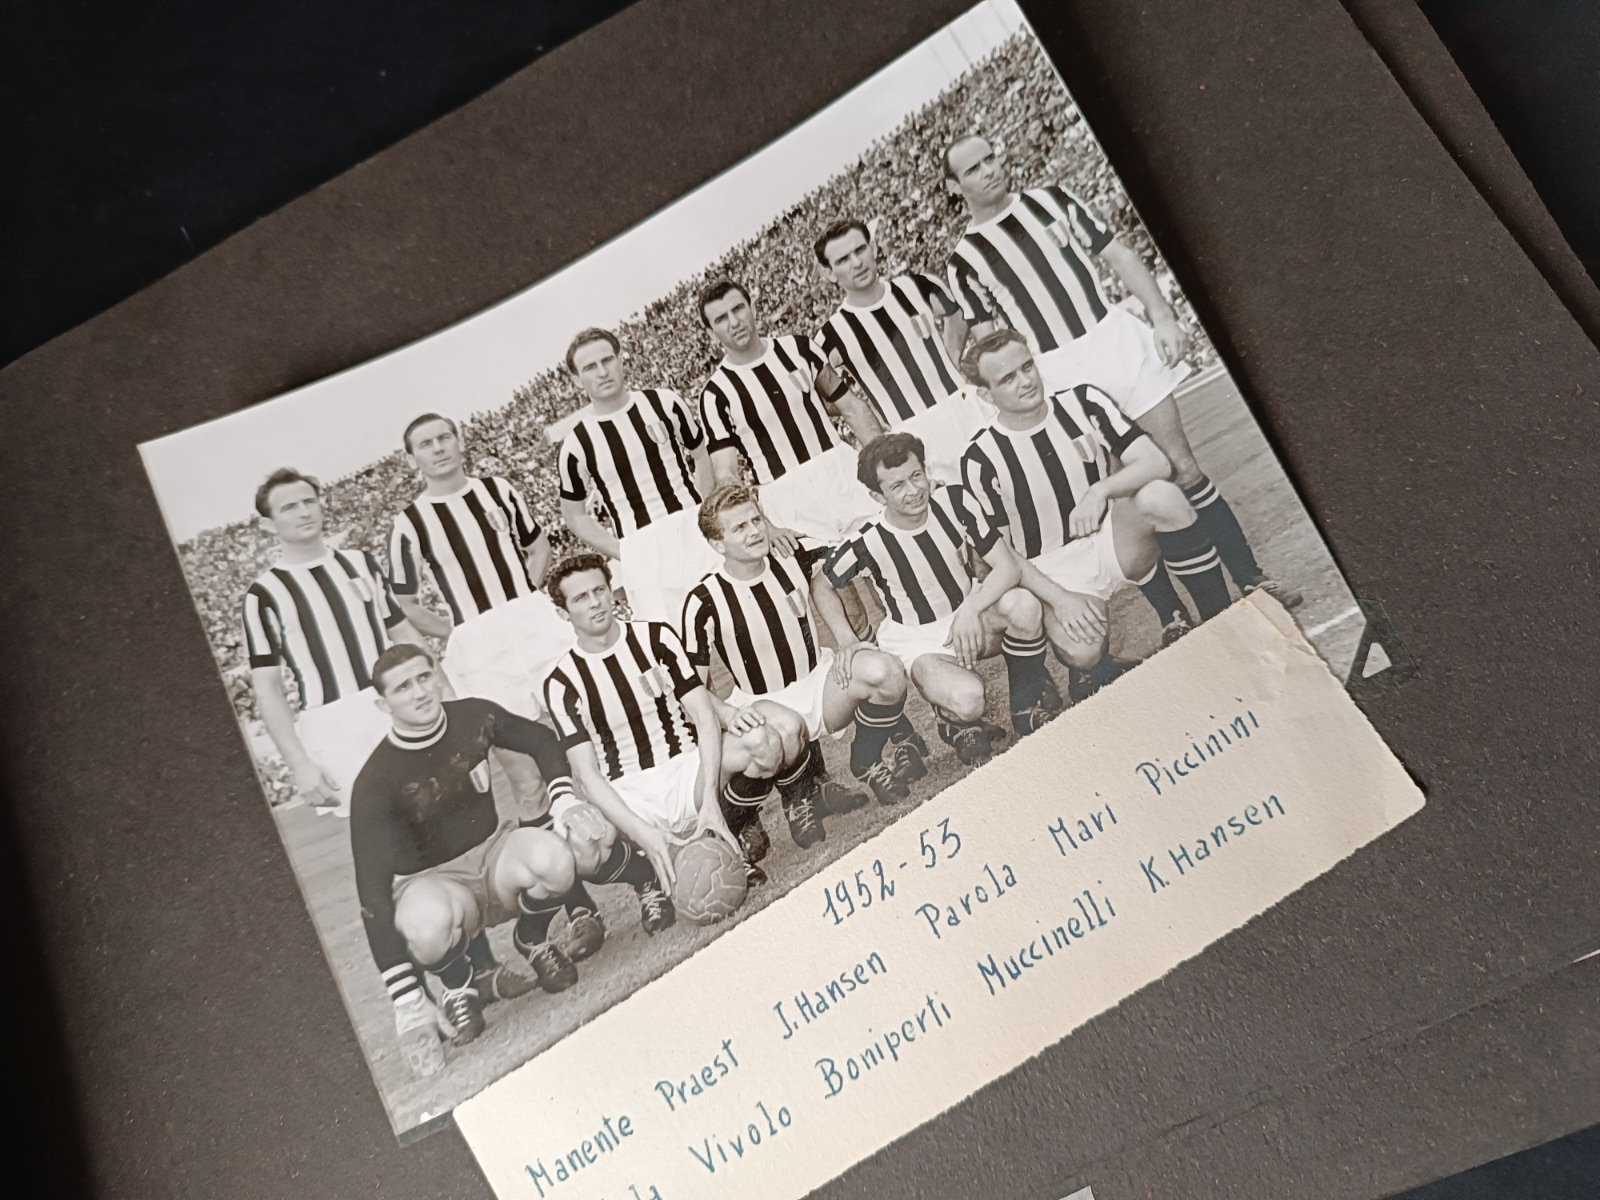 1952-53
Manente Praest J. Hansen Parola Mari Piccinini
Vivolo Boniperti Muccinelli K. Hansen